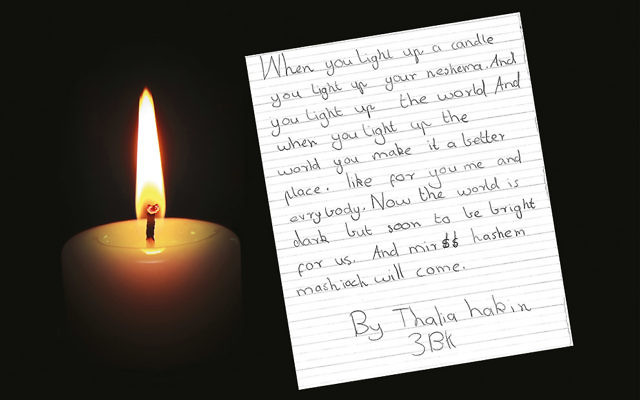 When you light up a candle
you light up your neshema. And
you light up the world And
when you light up the
world you make it a better
place. like for you me and
evrybody. Now the world is
dark but soon to be bright
for us. And mir$$ hashem
mashiach will come.
By Thalia hakin
3BK